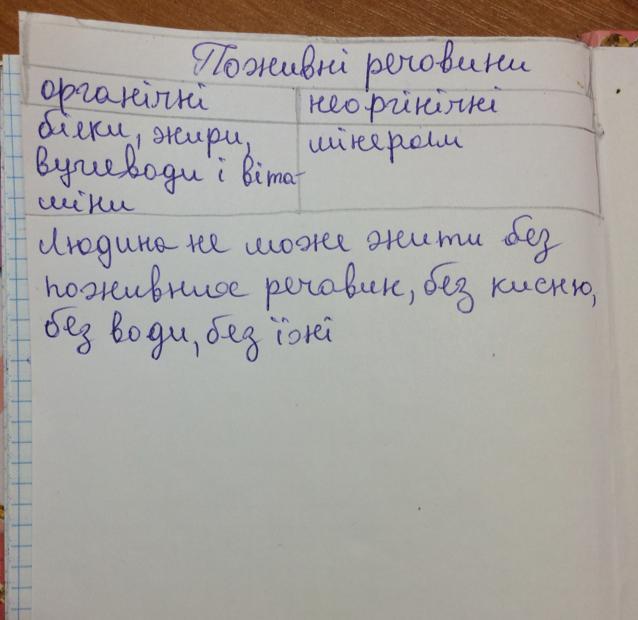 Поживні речовини
органічні неоргінічні
білки, жири, мінерали
вуглеводи і віта-
міни
Людина не може жити без
поживних речовин, без кисню,
без води, без їжі